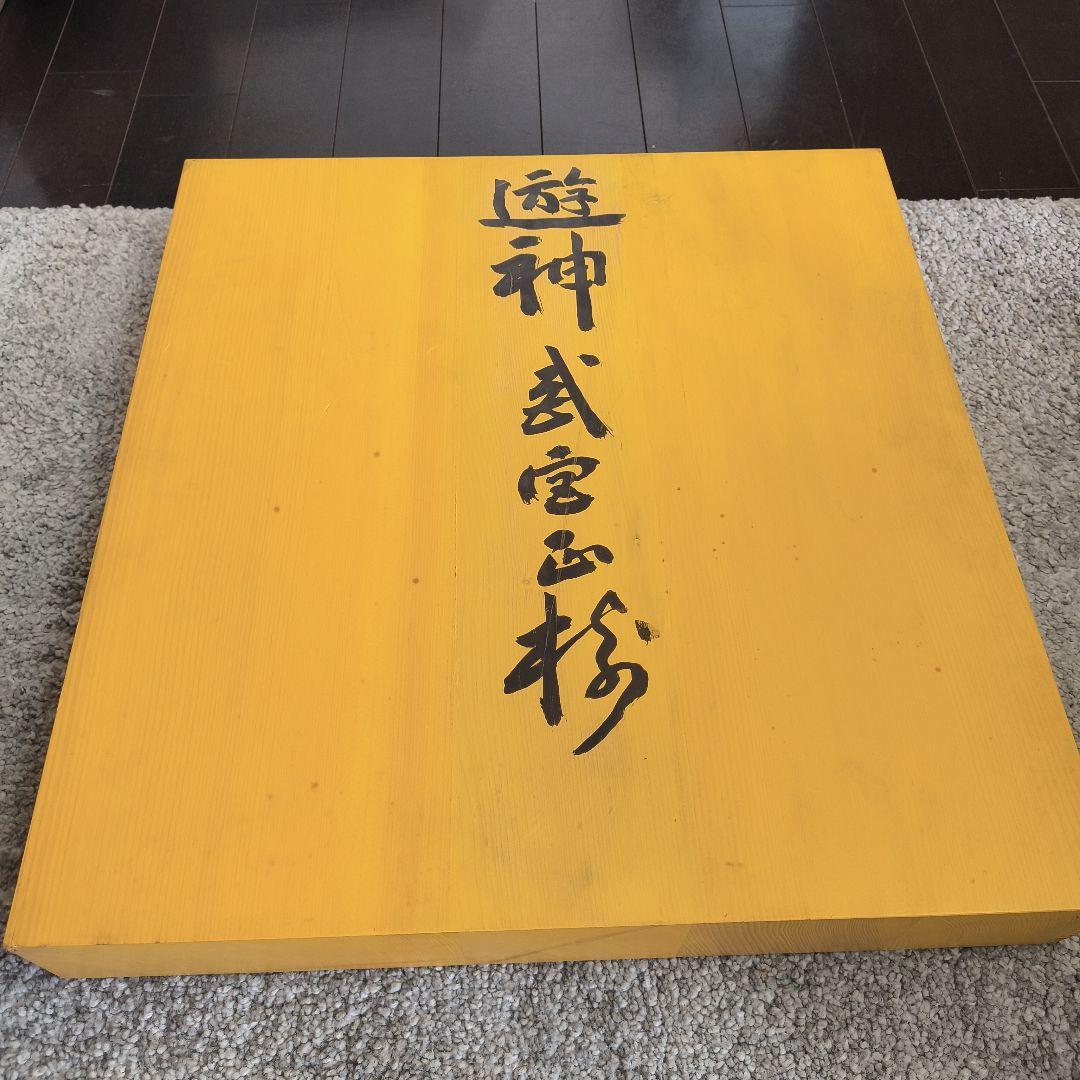 遊神 武宮正樹